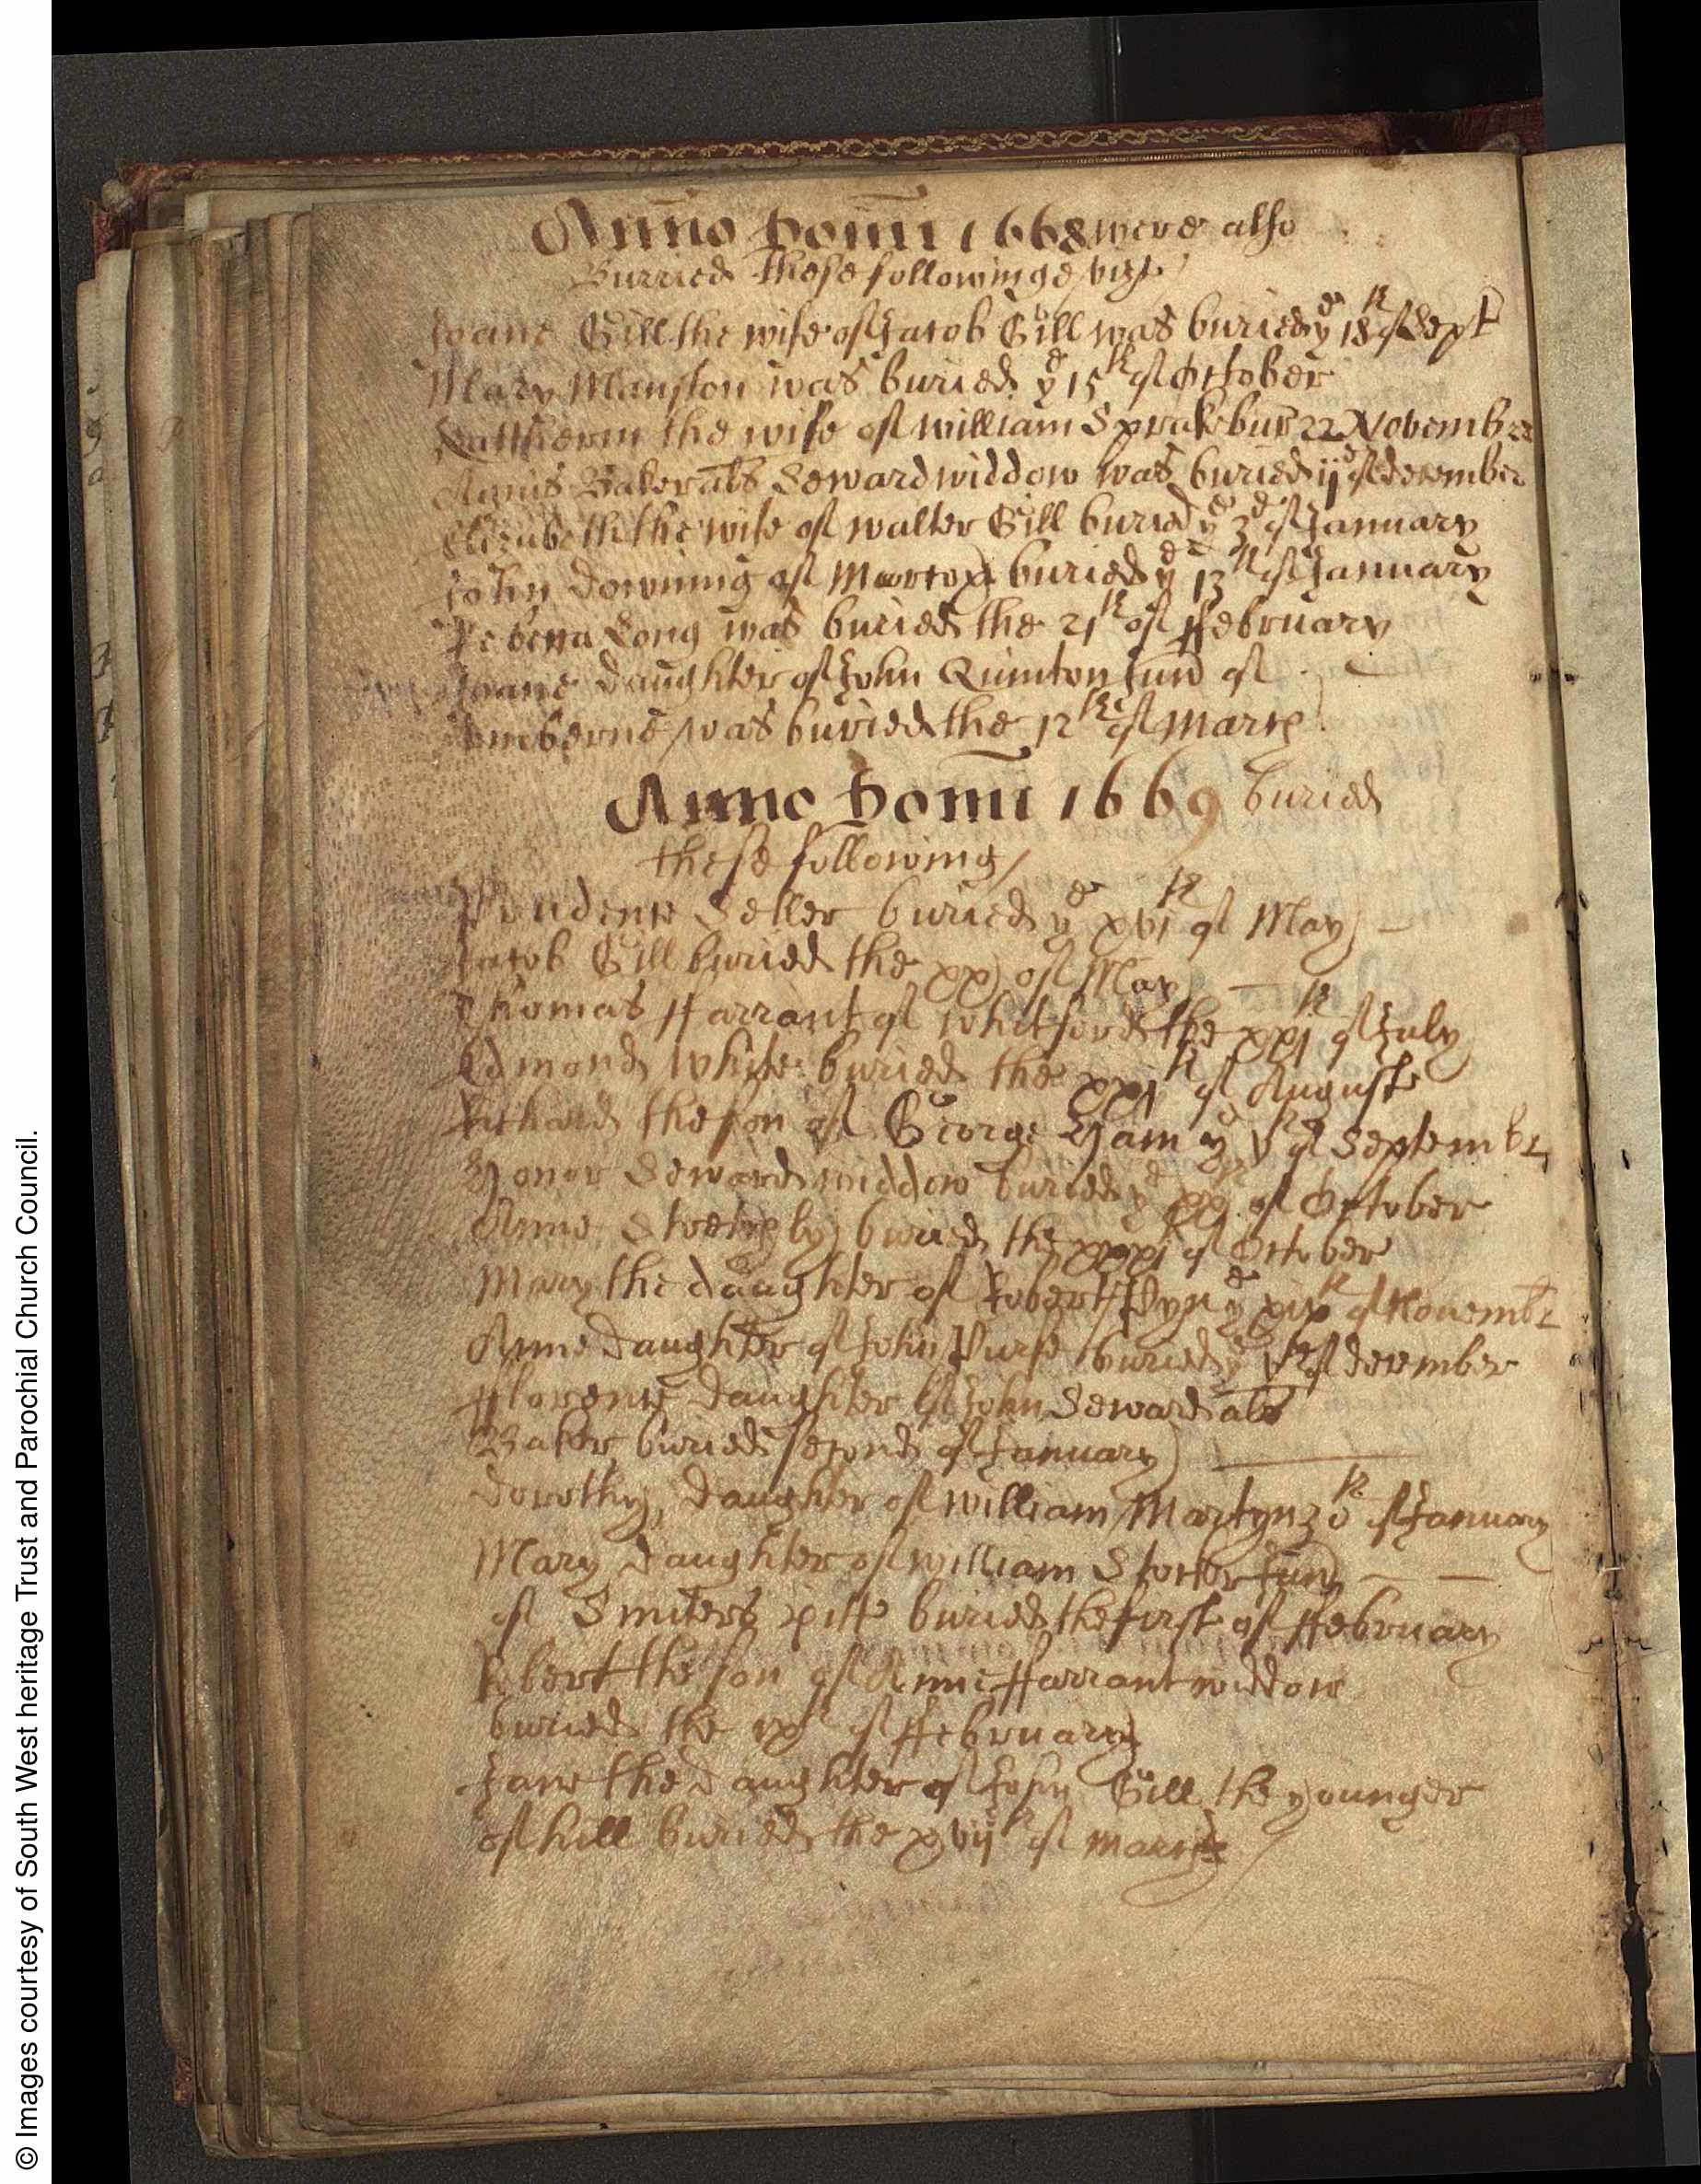 Anno Domi 1668 were also
Burried these followinge, vizt
Joane Gill the wife of Jacob Gill was buried ye 18th of Sept
Mary Manston was buried ye 15th of October
Kattherin the wife of William Sprake bur 22 November
Annis Baker als Seward widdow was buried ij of december
Elizabeth the wife of Walter Gill buried ye 3d of January
John Downing of buried ye 13th of January
Long was buried the 21th of ffebruary
Joane daughter of John Quinton Jun of
was buried the 12th of March
Anno Domi 1669 buried
these following
Prudence Seller buried ye xvjth of May
Jacob Gill buried the xx of May
Thomas ffarrant of Whitford the xxjth of July
Edmond White buried the xxjth of August
Richard the son of George Ham ye vth of Septembr
Honor Seward widdow buried ye xxth of October
Anne buried the xxxj of October
Mary the daughter of Robert ye xixth of Novembr
Anne daughter of John Purse buried ye vth of december
fflorence daughter of John Seward als
Baker buried second of January
Dorothy daughter of William Martyn 30th of January
Mary daughter of William Storker Jun
of Smiters pitt buried the first of ffebruary
Robert the son of Anne ffarrant widdow
buried the ixth of ffebruary
Jane the daughter of John Gill the younger
of hill buried the xvijth of March
© Images courtesy of South West heritage Trust and Parochial Church Council.